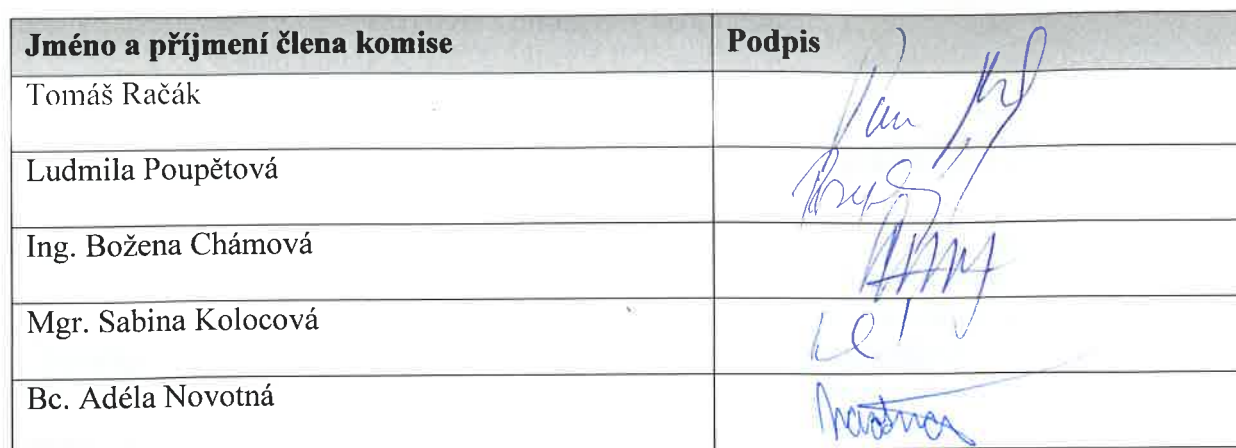 Jméno a příjmení člena komise Podpis
Tomáš Račák
Ludmila Poupětová
Ing. Božena Chámová
Mgr. Sabina Kolocová
Bc. Adéla Novotná